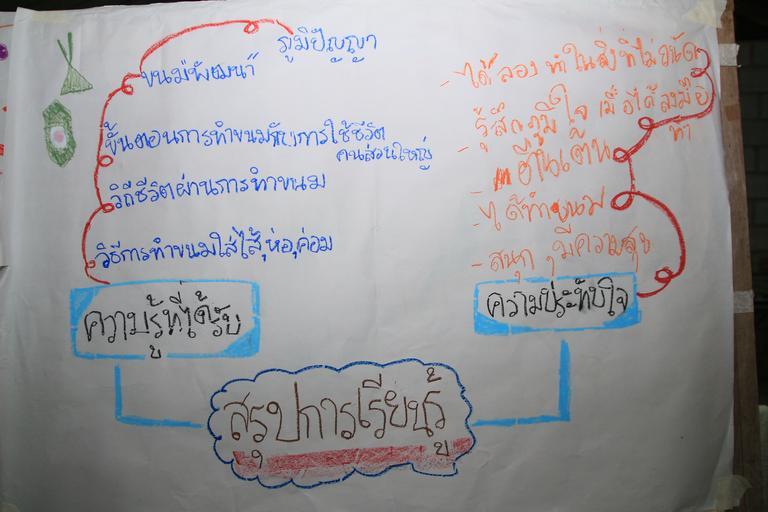 ภูมิปัญญา
ขนมพัฒนา
ขั้นตอนการทำขนมกับการใช้ชีวิต
คนส่วนใหญ่
วิถีชีวิตผ่านการทำขนม
วิธีการทำขนมใส่ไส้,ห่อ,ค่อม
ความรู้ที่ได้รับ
- ได้ลองทำในสิ่งที่ไม่ถนัด
- รู้สึกภูมิใจ เมื่อได้ลงมือ
ทำ
- ตื่นเต้น
- ได้ทำขนม
- สนุก, มีความสุข
ความประทับใจ
สรุปการเรียนรู้